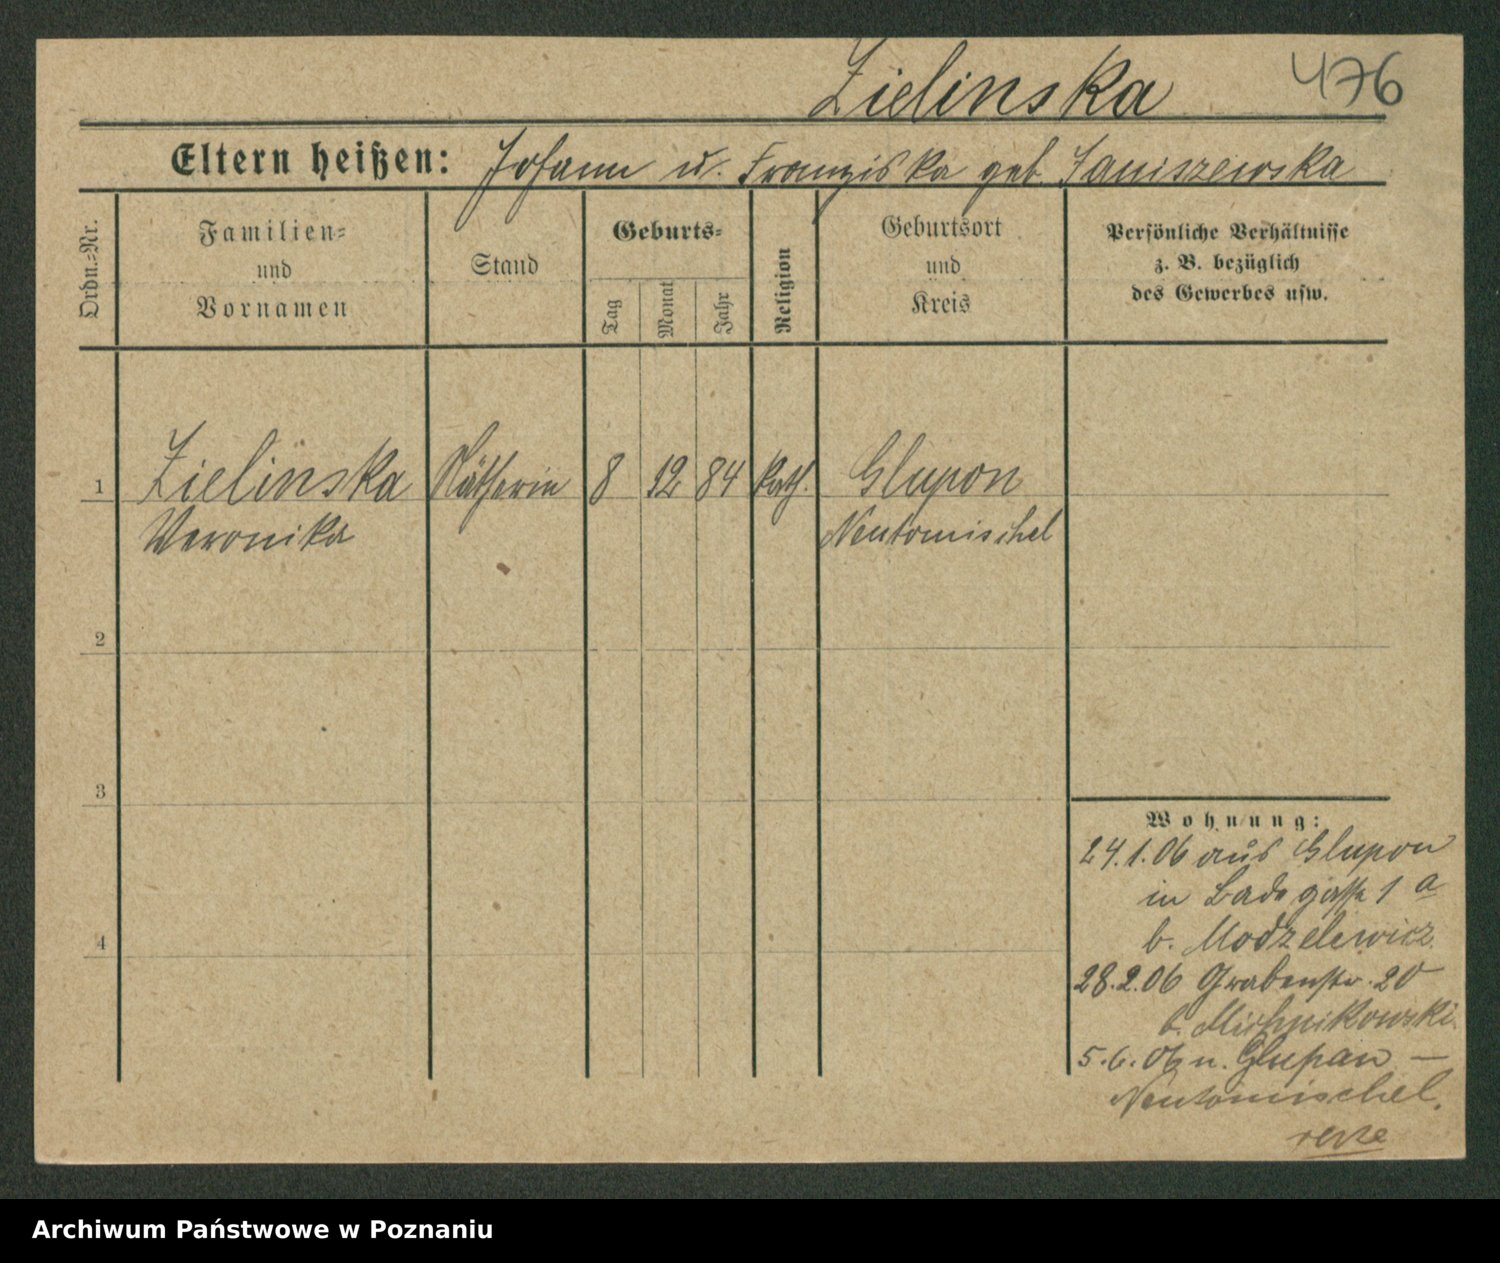 Zielinska 476
Eltern heißen: Johann u. Franziska geb. Janiszewska
Ordn.-Nr.
Familien-
und
Vornamen
Stand
Geburts-
Tag
Monat
Jahr
Religion
Geburtsort
und
Kreis
Persönliche Verhältnisse
z. B. bezüglich
des Gewerbes usw.
1 Zielinska Nätherin 8 12 84 kath. Glupon
Veronika Neutomischel
2
3
4
Wohnung:
24.1.06 aus Glupon
in Badegasse 1 a
b. Modzelewicz
28.2.06 Grabenstr. 20
b. Michnikowski.
5.6.06 n. Glupan —
Neutomischel.
Archiwum Państwowe w Poznaniu